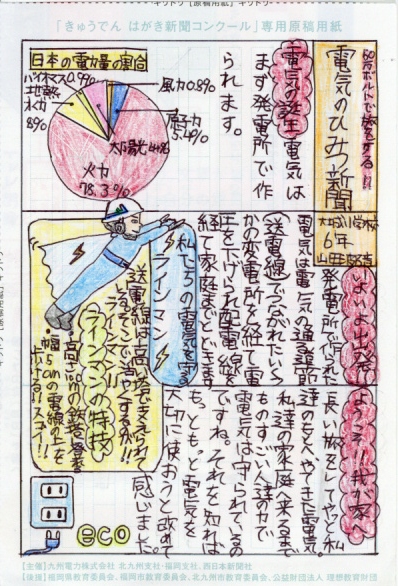 「きゅうでん はがき新聞コンクール」専用原稿用紙
50万ボルトで旅をする!!
電気のひみつ新聞
6年
電気の誕生
電気は
まず発電所で作
られます。
日本の電力量の割合
バイオマス
地熱
水力
8%
風力0.8%
原子力
5.4%
太陽光
火力
78.3%
いよいよ出発!!
発電所で作られた
電気は電気の通る道筋
(送電線)でつながれたいくつ
かの変電所を経て電
圧を下げられ配電線を
経て家庭までとどきます。
私たちの電気を守る
ラインマン
送電線は高い塔でささえられ
ラインマンの特技
高さ
の鉄塔
幅5cmの電線の上を
歩ける!!スゴイ!!
ようこそ!!我が家へ
長い旅をしてやっと私
達のもとへやってきた電気。
私達の家庭へ来るまで
ものすごい人達の力で
電気は守られているの
ですね。それを知れて
もっともっと電気を
大切に使おうと改めて
感じました。
ECO
【主催】九州電力株式会社 北九州支社・福岡支社、西日本新聞社
【後援】福岡県教育委員会、福岡市教育委員会、北九州市教育委員会、公益財団法人 理想教育財団